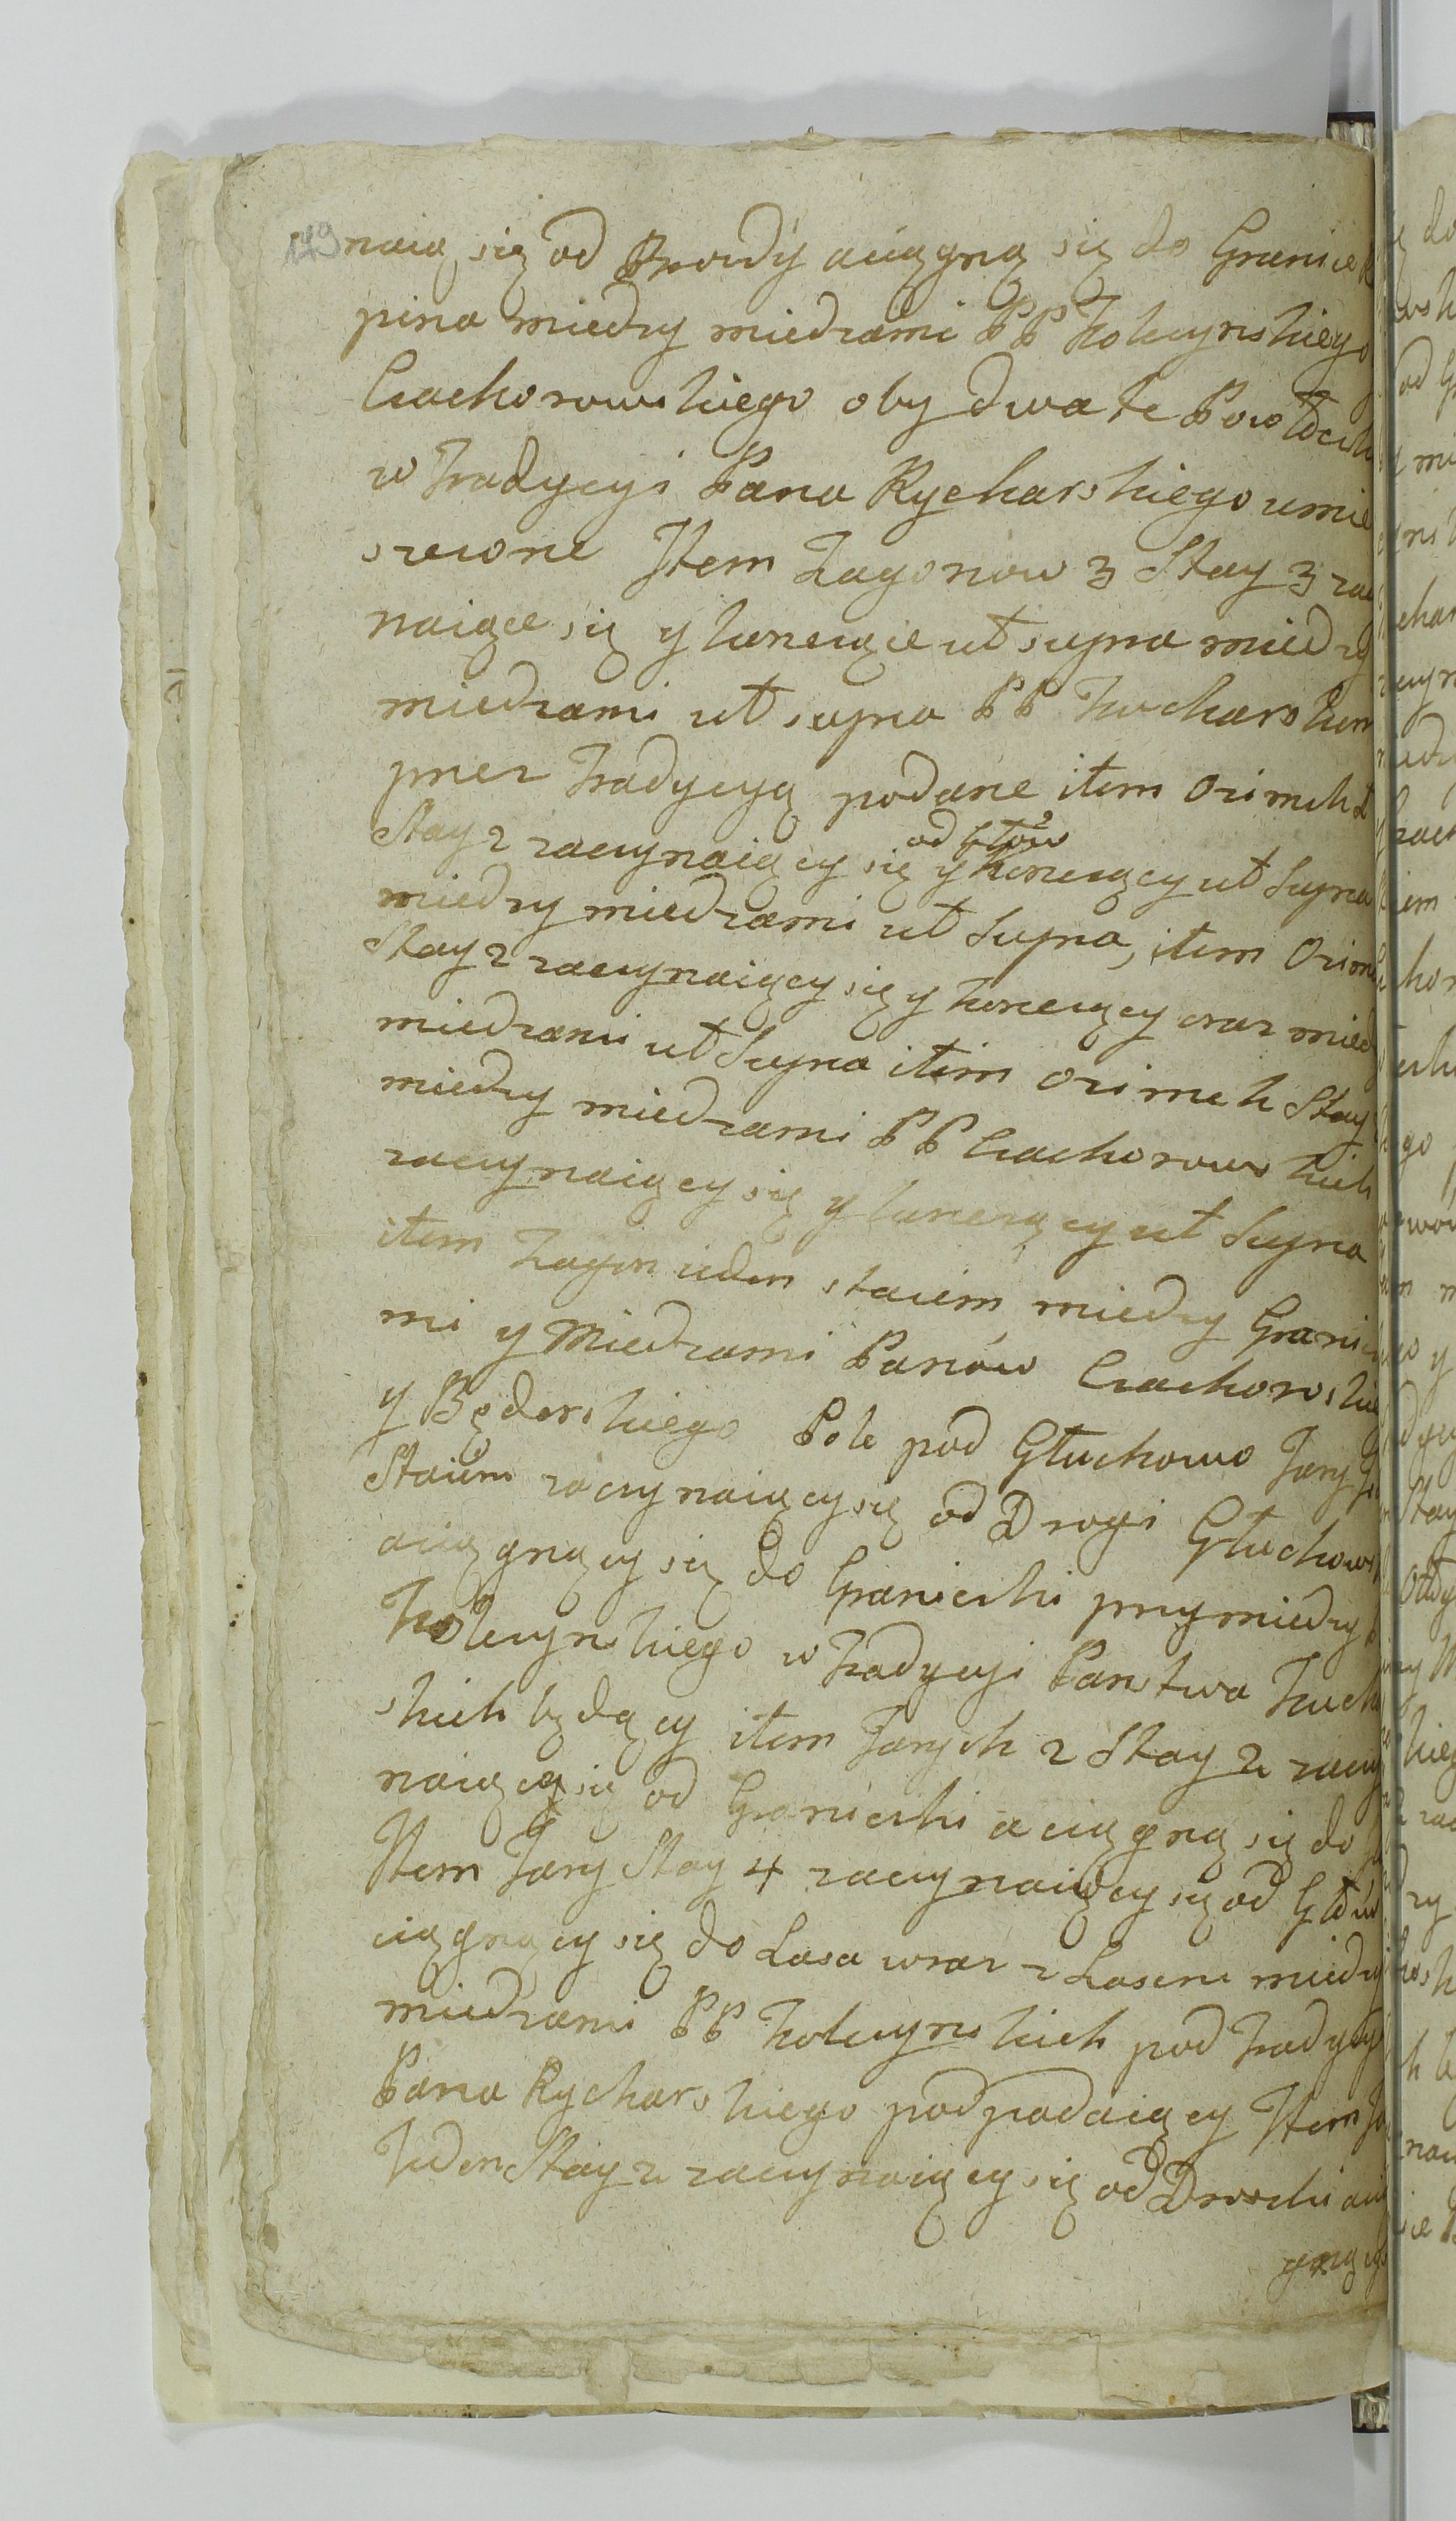 149
naią się od Brozdy aciągną się do Granic
pina miedzy miedzami PP Kolczynskiego
Czachorowskiego oby dwa te Powłoczki
w Tradycyi Pana Rycharskiego umie
szczone Item Zagonow 3 Stay 3 zac
naiące się y konczące ut supra miedzy
miedzami ut supra PP Kucharskim
przez Tradycyą podane item Ozimch
Stay 2 zaczynaiący się od Głow y konczący ut Supra
miedzy miedzami ut Supra, item Ozim
Stay 2 zaczynaiący się y konczący oraz mied
miedzami ut Supra item Ozimek Stay
miedzy miedzami PP Czachorowskich
zaczynaiący się y konczący ut Supra
item Zagon ieden staiem miedzy Granic
mi y Miedzami Panów Czachorowskie
y Będerskiego Pole pod Głuchowo Jary
Staiem zaczynaiący się od Drogi Głuchows
aciągnący się do Graniczki przy miedzy
Kolczynskiego w Tradycyi Panstwa Kuch
skich będący item Jarych 2 Stay 2 zaczy
naiące się od Graniczki aciągną się do
Item Jary Stay 4 zaczynaiący się od Głów
ciągnący się do Lasa wraz z Lasem miedzy
miedzami PP Kolczynskich pod Tradycyą
Pana Rycharskiego podpadaiący Item
Jeden Stay 2 zaczynaiący się od Drozki acią
gnący